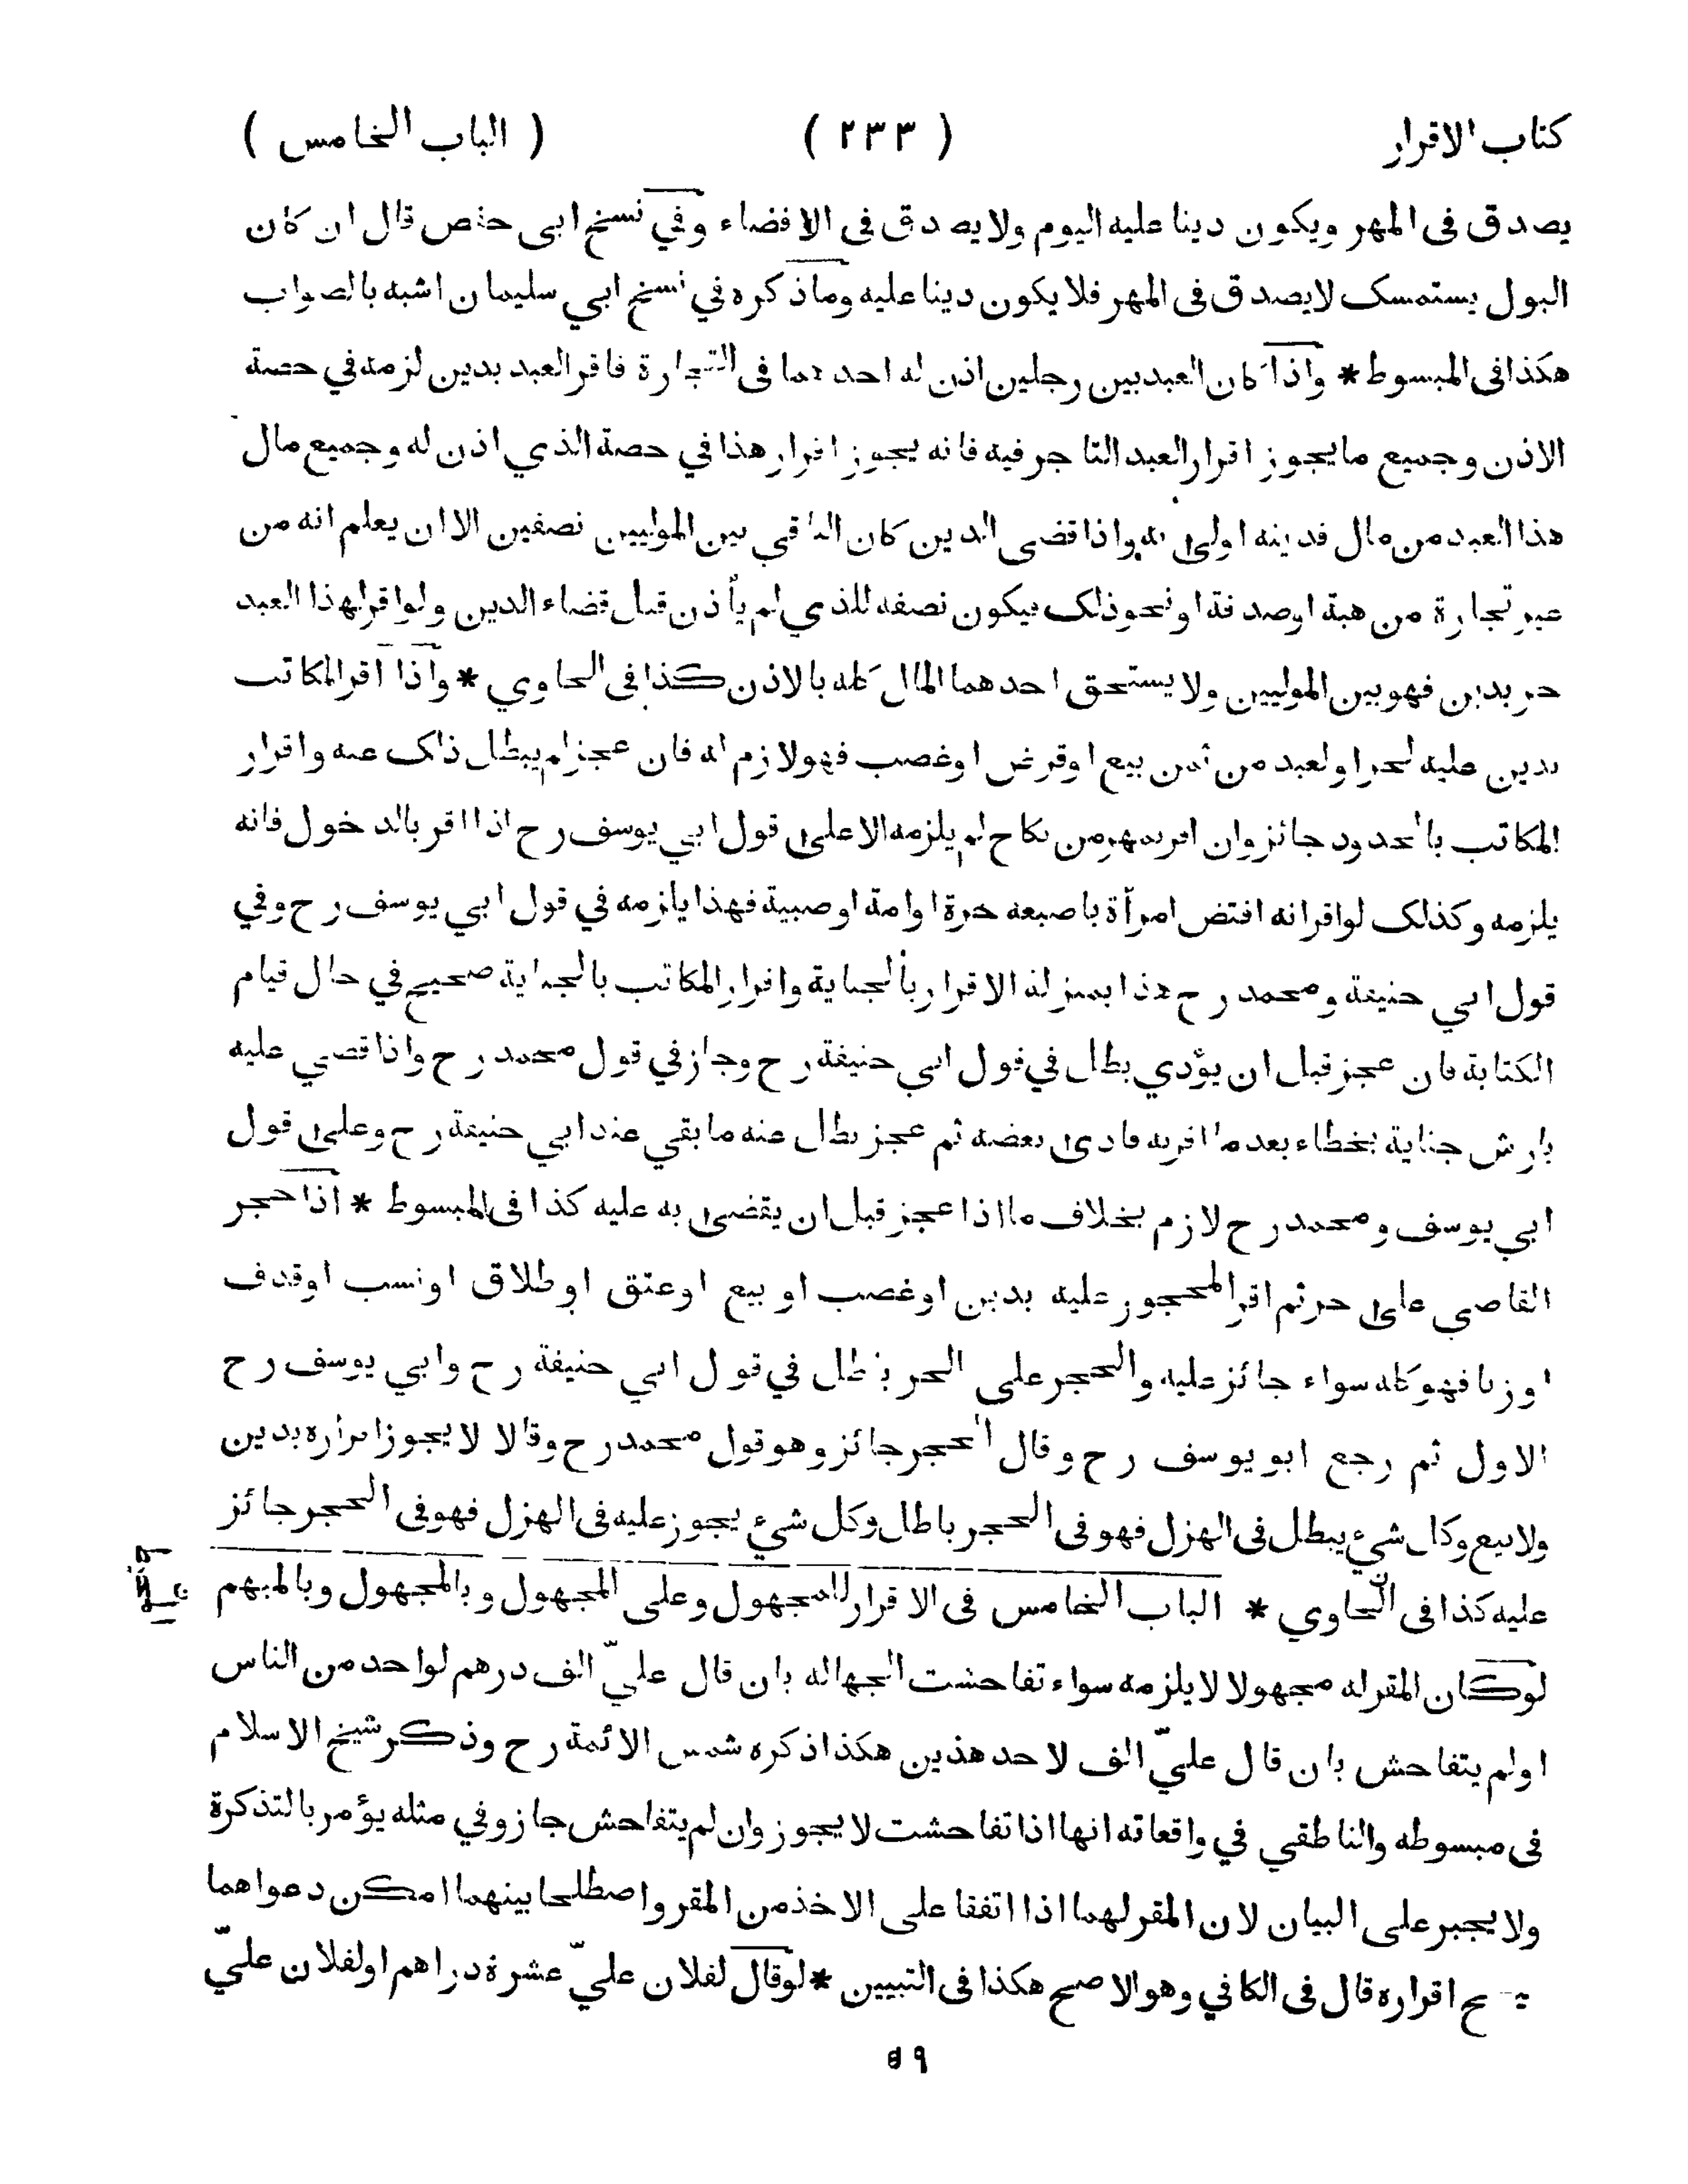 كتاب الاقرار ( ٢٣٣ ) ( الباب الخامس )
يصدق فى المهر ويكون دينا عليه اليوم ولا يصدق فى الافضاء وفي نسخ ابى حفص قال ان كان
البول يستمسك لايصدق فى المهر فلا يكون دينا عليه وماذكره في نسخ ابي سليمان اشبه بالصواب
هكذا فى المبسوط * واذا كان العبد بين رجلين اذن له احدهما فى التجارة فاقر العبد بدين لزمه في حصة
الاذن وجميع ما يجوز اقرار العبد التاجر فيه فانه يجوز اقرار هذا في حصة الذي اذن له وجميع مال
هذا العبد من مال فدينه اولى به واذا قضى الدين كان الباقي بين الموليين نصفين الا ان يعلم انه من
غير تجارة من هبة او صدقة او نحو ذلك فيكون نصفه للذي لم يأذن قبل قضاء الدين ولو اقر لهذا العبد
حر بدين فهو بين الموليين ولا يستحق احدهما المال كله بالاذن كذا فى الحاوي * واذا اقر المكاتب
بدين عليه لحر او لعبد من ثمن بيع او قرض او غصب فهو لازم له فان عجز لم يبطل ذلك عنه واقرار
المكاتب بالحدود جائز وان اقر بمهر من نكاح لم يلزمه الا على قول ابي يوسف رح اذا اقر بالدخول فانه
يلزمه وكذلك لو اقر انه افتض امرأة باصبعه حرة او امة او صبية فهذا يلزمه في قول ابي يوسف رح وفي
قول ابي حنيفة ومحمد رح هذا بمنزلة الاقرار بالجناية واقرار المكاتب بالجناية صحيح في حال قيام
الكتابة فان عجز قبل ان يؤدي بطل في قول ابي حنيفة رح وجاز في قول محمد رح واذا قضي عليه
بارش جناية بخطاء بعد ما اقر به فادى بعضه ثم عجز بطل عنه ما بقي عند ابي حنيفة رح وعلى قول
ابي يوسف ومحمد رح لازم بخلاف ما اذا عجز قبل ان يقضى به عليه كذا فى المبسوط * اذا حجر
القاضي على حر ثم اقر المحجور عليه بدين او غصب او بيع او عتق او طلاق او نسب او قذف
او زنا فهو كله سواء جائز عليه والحجر على الحر باطل في قول ابي حنيفة رح وابي يوسف رح
الاول ثم رجع ابو يوسف رح وقال الحجر جائز وهو قول محمد رح وقالا لا يجوز اقراره بدين
ولا بيع وكل شيء يبطل فى الهزل فهو فى الحجر باطل وكل شيء يجوز عليه فى الهزل فهو فى الحجر جائز
عليه كذا فى الحاوي * الباب الخامس فى الاقرار للمجهول وعلى المجهول وبالمجهول وبالمبهم
لو كان المقر له مجهولا لا يلزمه سواء تفاحشت الجهاله بان قال عليّ الف درهم لواحد من الناس
او لم يتفاحش بان قال عليّ الف لاحد هذين هكذا ذكره شمس الائمة رح وذكر شيخ الاسلام
فى مبسوطه والناطقي في واقعاته انها اذا تفاحشت لا يجوز وان لم يتفاحش جاز وفي مثله يؤمر بالتذكرة
ولا يجبر على البيان لان المقر لهما اذا اتفقا على الاخذ من المقر واصطلحا بينهما امكن دعواهما
اقراره قال فى الكافي وهو الاصح هكذا فى التبيين * لو قال لفلان عليّ عشرة دراهم او لفلان عليّ
٥٩